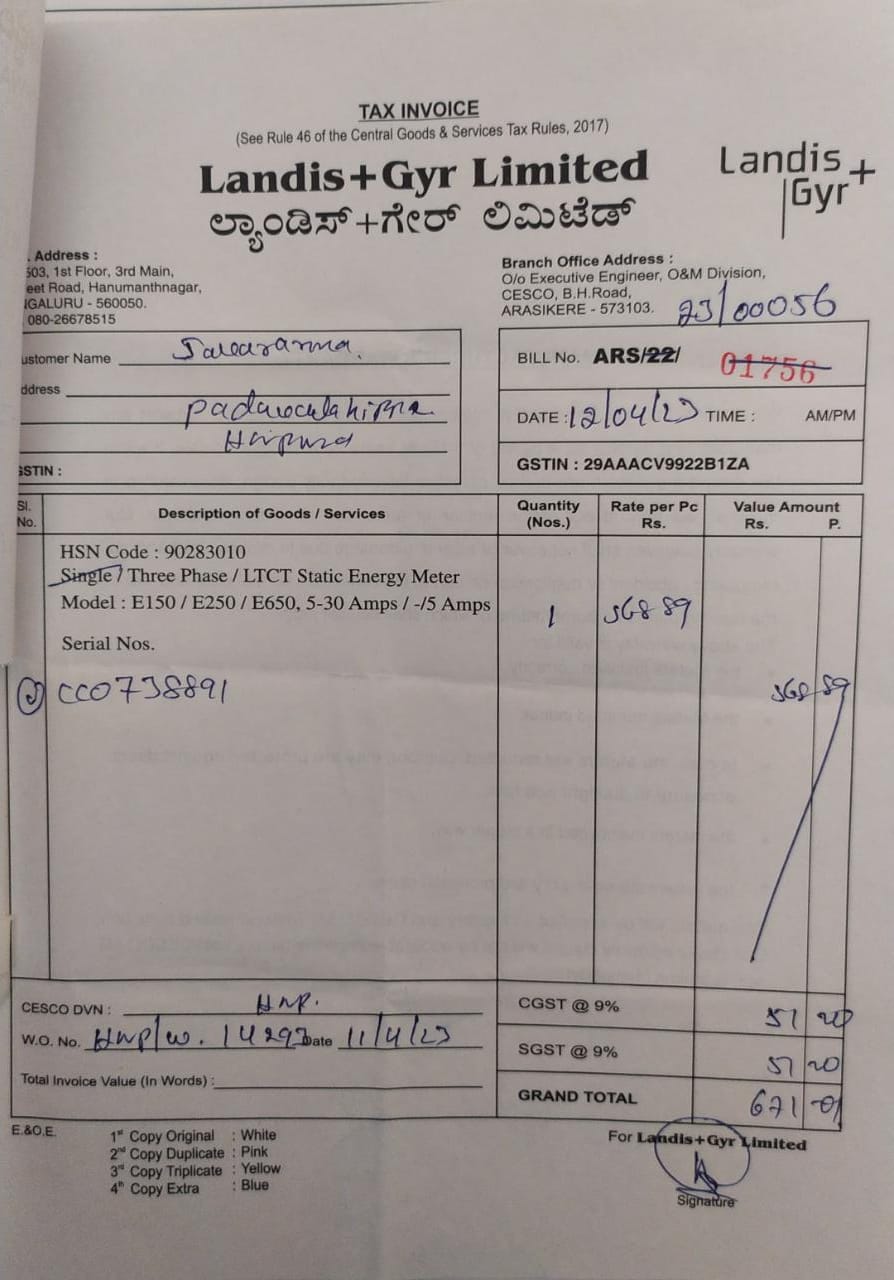 TAX INVOICE
(See Rule 46 of the Central Goods & Services Tax Rules, 2017)
Landis+Gyr Limited
Landis+
Gyr
ಲ್ಯಾಂಡಿಸ್+ಗೇರ್ ಲಿಮಿಟೆಡ್
. Address :
503, 1st Floor, 3rd Main,
eet Road, Hanumanthnagar,
GALURU - 560050.
080-26678515
Branch Office Address :
O/o Executive Engineer, O&M Division,
CESCO, B.H.Road,
ARASIKERE - 573103.
23/00056
ustomer Name
ddress
GSTIN :
BILL No. ARS/22/ 01756
DATE : 12/04/23 TIME : AM/PM
GSTIN : 29AAACV9922B1ZA
Sl. No. Description of Goods / Services Quantity (Nos.) Rate per Pc Rs. Value Amount Rs. P.
HSN Code : 90283010
Single / Three Phase / LTCT Static Energy Meter
Model : E150 / E250 / E650, 5-30 Amps / -/5 Amps 1 568 89
Serial Nos.
CC0738891 568 89
CESCO DVN : HNP.
W.O. No. HNP/W. 14293 Date 11/4/23
Total Invoice Value (In Words) :
CGST @ 9% 51 20
SGST @ 9% 51 20
GRAND TOTAL 671 01
E.&O.E.
1st Copy Original : White
2nd Copy Duplicate : Pink
3rd Copy Triplicate : Yellow
4th Copy Extra : Blue
For Landis+Gyr Limited
Signature